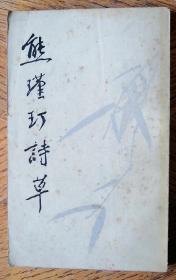 熊瑾玎詩草